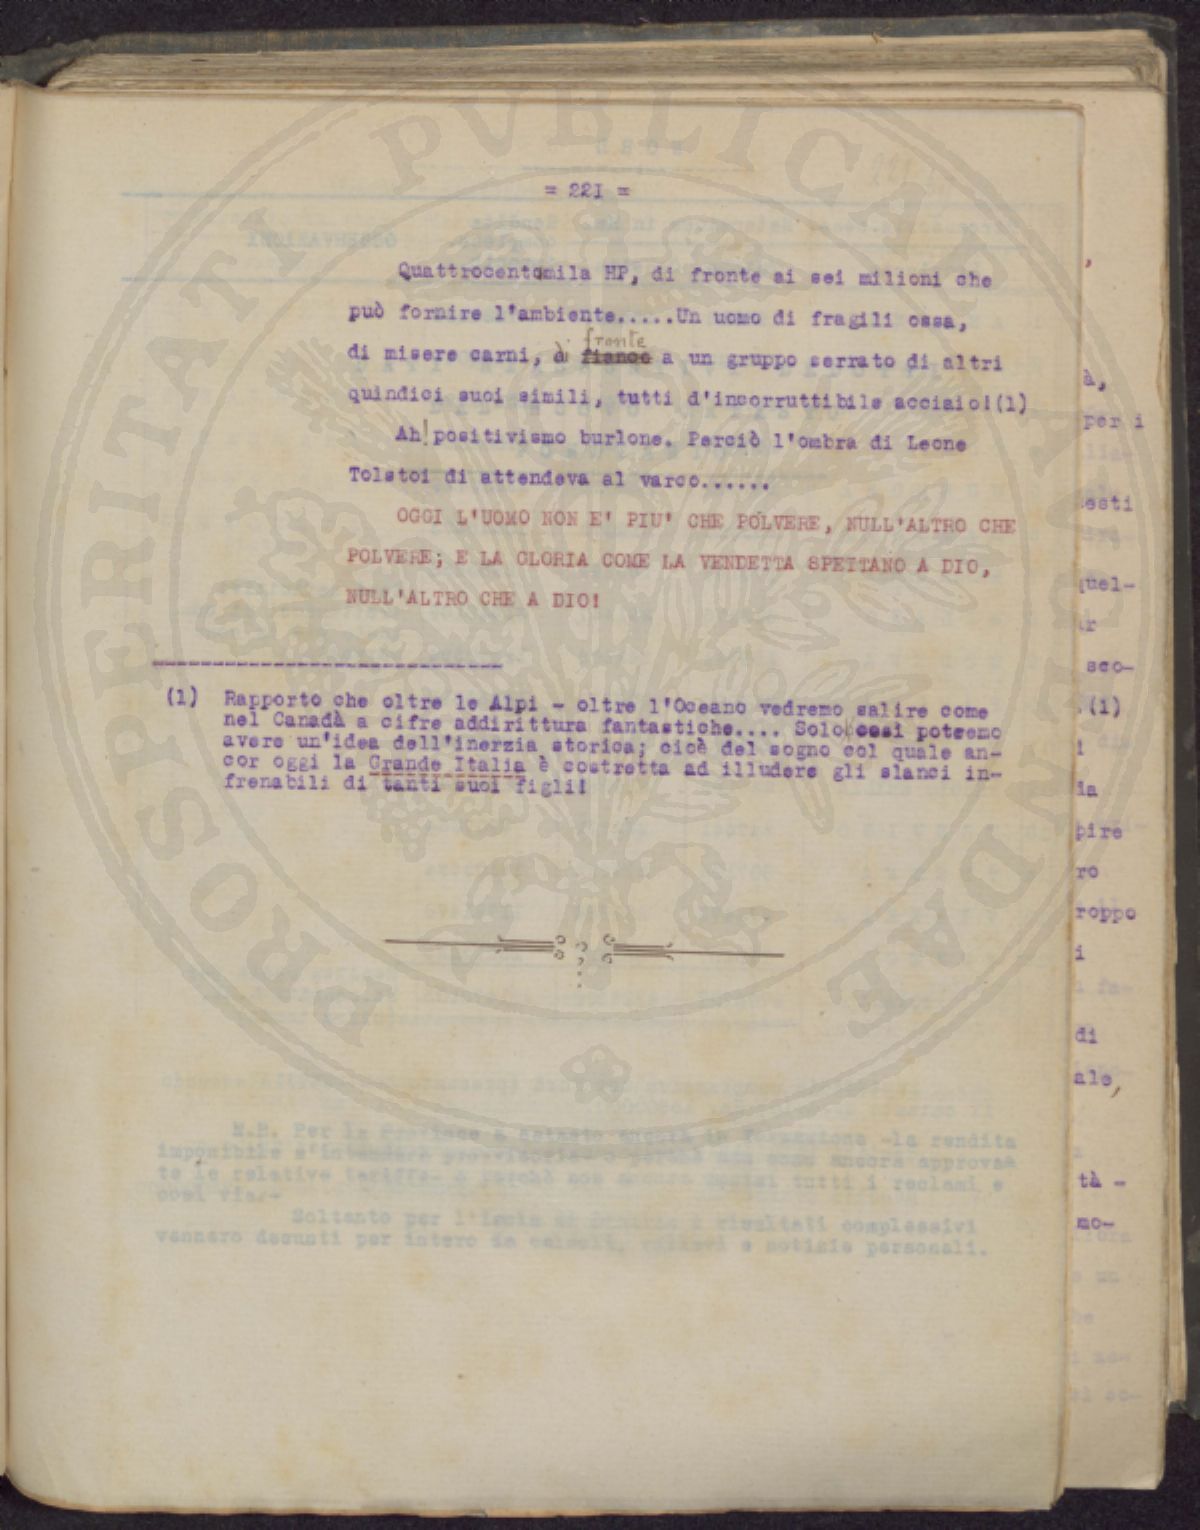 = 22I =
Quattrocentomila HP, di fronte ai sei milioni che
può fornire l'ambiente.....Un uomo di fragili ossa,
di misere carni, di fronte
fianco a un gruppo serrato di altri
quindici suoi simili, tutti d'incorruttibile acciaio!(1)
Ah! positivismo burlone. Perciò l'ombra di Leone
Tolstoi di attendeva al varco......
OGGI L'UOMO NON E' PIU' CHE POLVERE, NULL'ALTRO CHE
POLVERE; E LA GLORIA COME LA VENDETTA SPETTANO A DIO,
NULL'ALTRO CHE A DIO!
(1) Rapporto che oltre le Alpi - oltre l'Oceano vedremo salire come
nel Canadà a cifre addirittura fantastiche.... Solo così potremo
avere un'idea dell'inerzia storica; cioè del sogno col quale an-
cor oggi la Grande Italia è costretta ad illudere gli slanci in-
frenabili di tanti suoi figli!
PROSPERITATI PVBLICAE AVGENDAE
N.B. Per le Provincie a catasto ancora in formazione -la rendita
imponibile s'intenderà provvisoria- o perchè non sono ancora approvate
te le relative tariffe- o perchè non ancora decisi tutti i reclami e
così via.-
Soltanto per l'isola di i risultati complessivi
vennero desunti per intero da calcoli, rilievi e notizie personali.
à,
per i
esti
quel-
ar
sco-
.(1)
i
ia
pire
ro
roppo
i
di
ale,
tà -
mo-